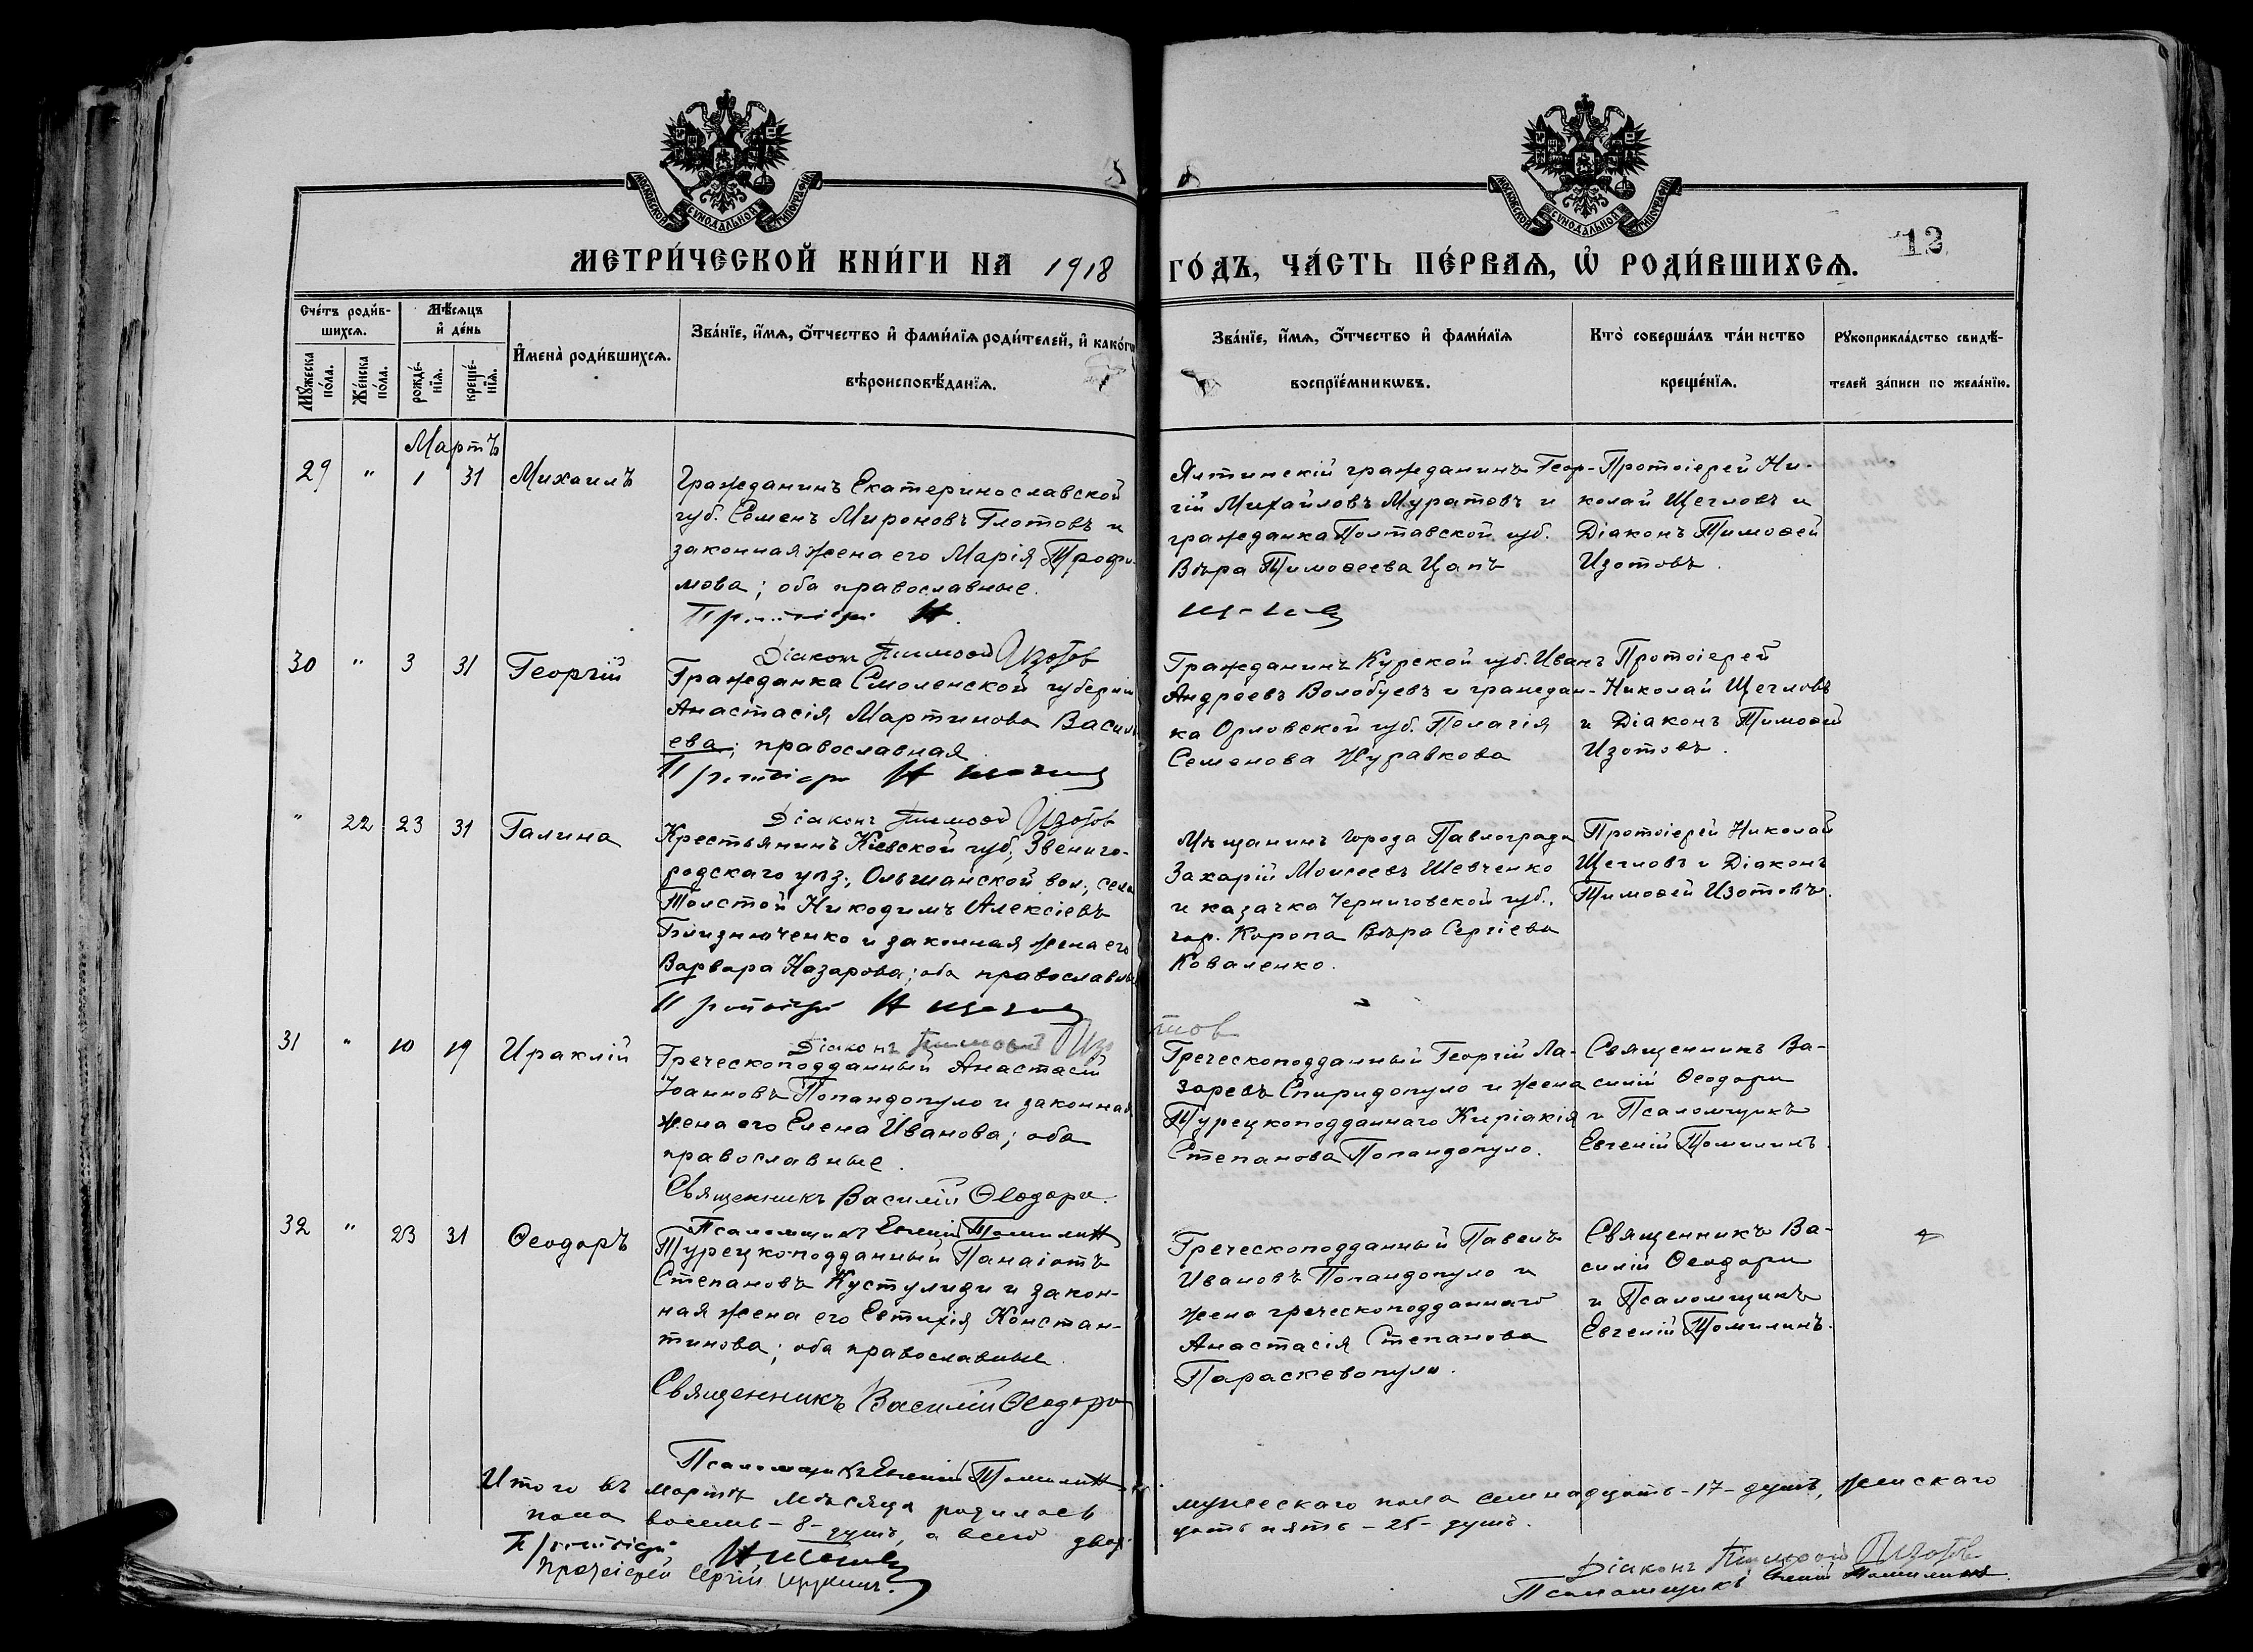 МОСКОВСКОЙ СУНОДАЛЬНОЙ ТИПОГРАФІИ
МОСКОВСКОЙ СУНОДАЛЬНОЙ ТИПОГРАФІИ
МЕТРИ́ЧЕСКОЙ КНИ́ГИ НА 1918 ГО́ДЪ, ЧА́СТЬ ПЕ́РВАѦ, Ѡ҆ РОДИ́ВШИХСѦ.
12
Сче́тъ роди́в-
шихсѧ.
Мꙋ́жеска по́ла.
Же́нска по́ла.
Мѣ́сѧцъ
и҆ де́нь
рожде́-
нїѧ.
креще́-
нїѧ.
И҆мена̀ роди́вшихсѧ.
Зва́нїе, и҆́мѧ, ѻ҆́тчество и҆ фами́лїѧ роди́телей, и҆ како́гѡ
вѣроисповѣ́данїѧ.
Зва́нїе, и҆́мѧ, ѻ҆́тчество и҆ фами́лїѧ
воспрїе́мникѡвъ.
Кто̀ соверша́лъ та́инство
креще́нїѧ.
Рꙋкоприкла́дство свидѣ́-
телей за́писи по жела́нїю.
Мартъ
29 " 1 31 Михаилъ
Гражданинъ Екатеринославской
губ. Семенъ Мироновъ Глотовъ и
законная жена его Марія Трофи-
мова; оба православные.
Ялтинскій гражданинъ Геор-
гій Михайловъ Муратовъ и
гражданка Полтавской губ.
Вѣра Тимоѳеева Цапъ
Протоіерей Ни-
колай Щегловъ и
Діаконъ Тимоѳей
Изотовъ.
Протоіерей Н. Щеглов
Діаконъ Тимоѳей Изотов
30 " 3 31 Георгій
Гражданка Смоленской губерніи
Анастасія Мартинова Василь-
ева; православная
Гражданинъ Курской губ. Иванъ
Андреевъ Волобуевъ и граждан-
ка Орловской губ. Пелагія
Семенова Журавкова
Протоіерей
Николай Щегловъ
и Діаконъ Тимоѳей
Изотовъ.
Протоіерей Н Щеглов
Діаконъ Тимоѳей Изотов
" 22 23 31 Галина
Крестьянинъ Кіевской губ., Звениго-
родскаго уѣз., Ольшанской вол., села
Толстой Никодимъ Алексіевъ
Близнюченко и законная жена его
Варвара Назарова; оба православные
Мѣщанинъ города Павлограда
Захарій Моисеевъ Шевченко
и казачка Черниговской губ.,
гор. Коропа Вѣра Сергіева
Коваленко.
Протоіерей Николай
Щегловъ и Діаконъ
Тимоѳей Изотовъ.
Протоіерей Н Щеглов
Діаконъ Тимоѳей Изотов
31 " 10 19 Ираклій
Греческоподданный Анастасій
Іоанновъ Попандопуло и законная
жена его Елена Иванова; оба
православные.
Греческоподданный Георгій Ла-
заревъ Спиридопуло и жена
Турецкоподданнаго Киріакія
Степанова Попандопуло.
Священникъ Ва-
силій Ѳеодори
и Псаломщикъ
Евгеній Томилинъ.
Священникъ Василій Ѳеодори.
Псаломщикъ Евгеній Томилин
32 " 23 31 Ѳеодоръ
Турецкоподданный Панаіотъ
Степановъ Кустулиди и закон-
ная жена его Евтихія Констан-
тинова; оба православные.
Греческоподданный Павелъ
Ивановъ Попандопуло и
жена греческоподданнаго
Анастасія Степанова
Параскевопуло.
Священникъ Ва-
силій Ѳеодори
и Псаломщикъ
Евгеній Томилинъ.
Священникъ Василій Ѳеодори
Псаломщикъ Евгеній Томилин
Итого въ мартѣ мѣсяцѣ родилось мужескаго пола семнадцать -17- душъ, женскаго
пола восемь - 8 - душъ, а всего двадцать пять - 25 - душъ.
Протоіерей Н Щеглов
Протоіерей Сергій
Діаконъ Тимоѳей Изотов
Псаломщикъ Евгеній Томилин